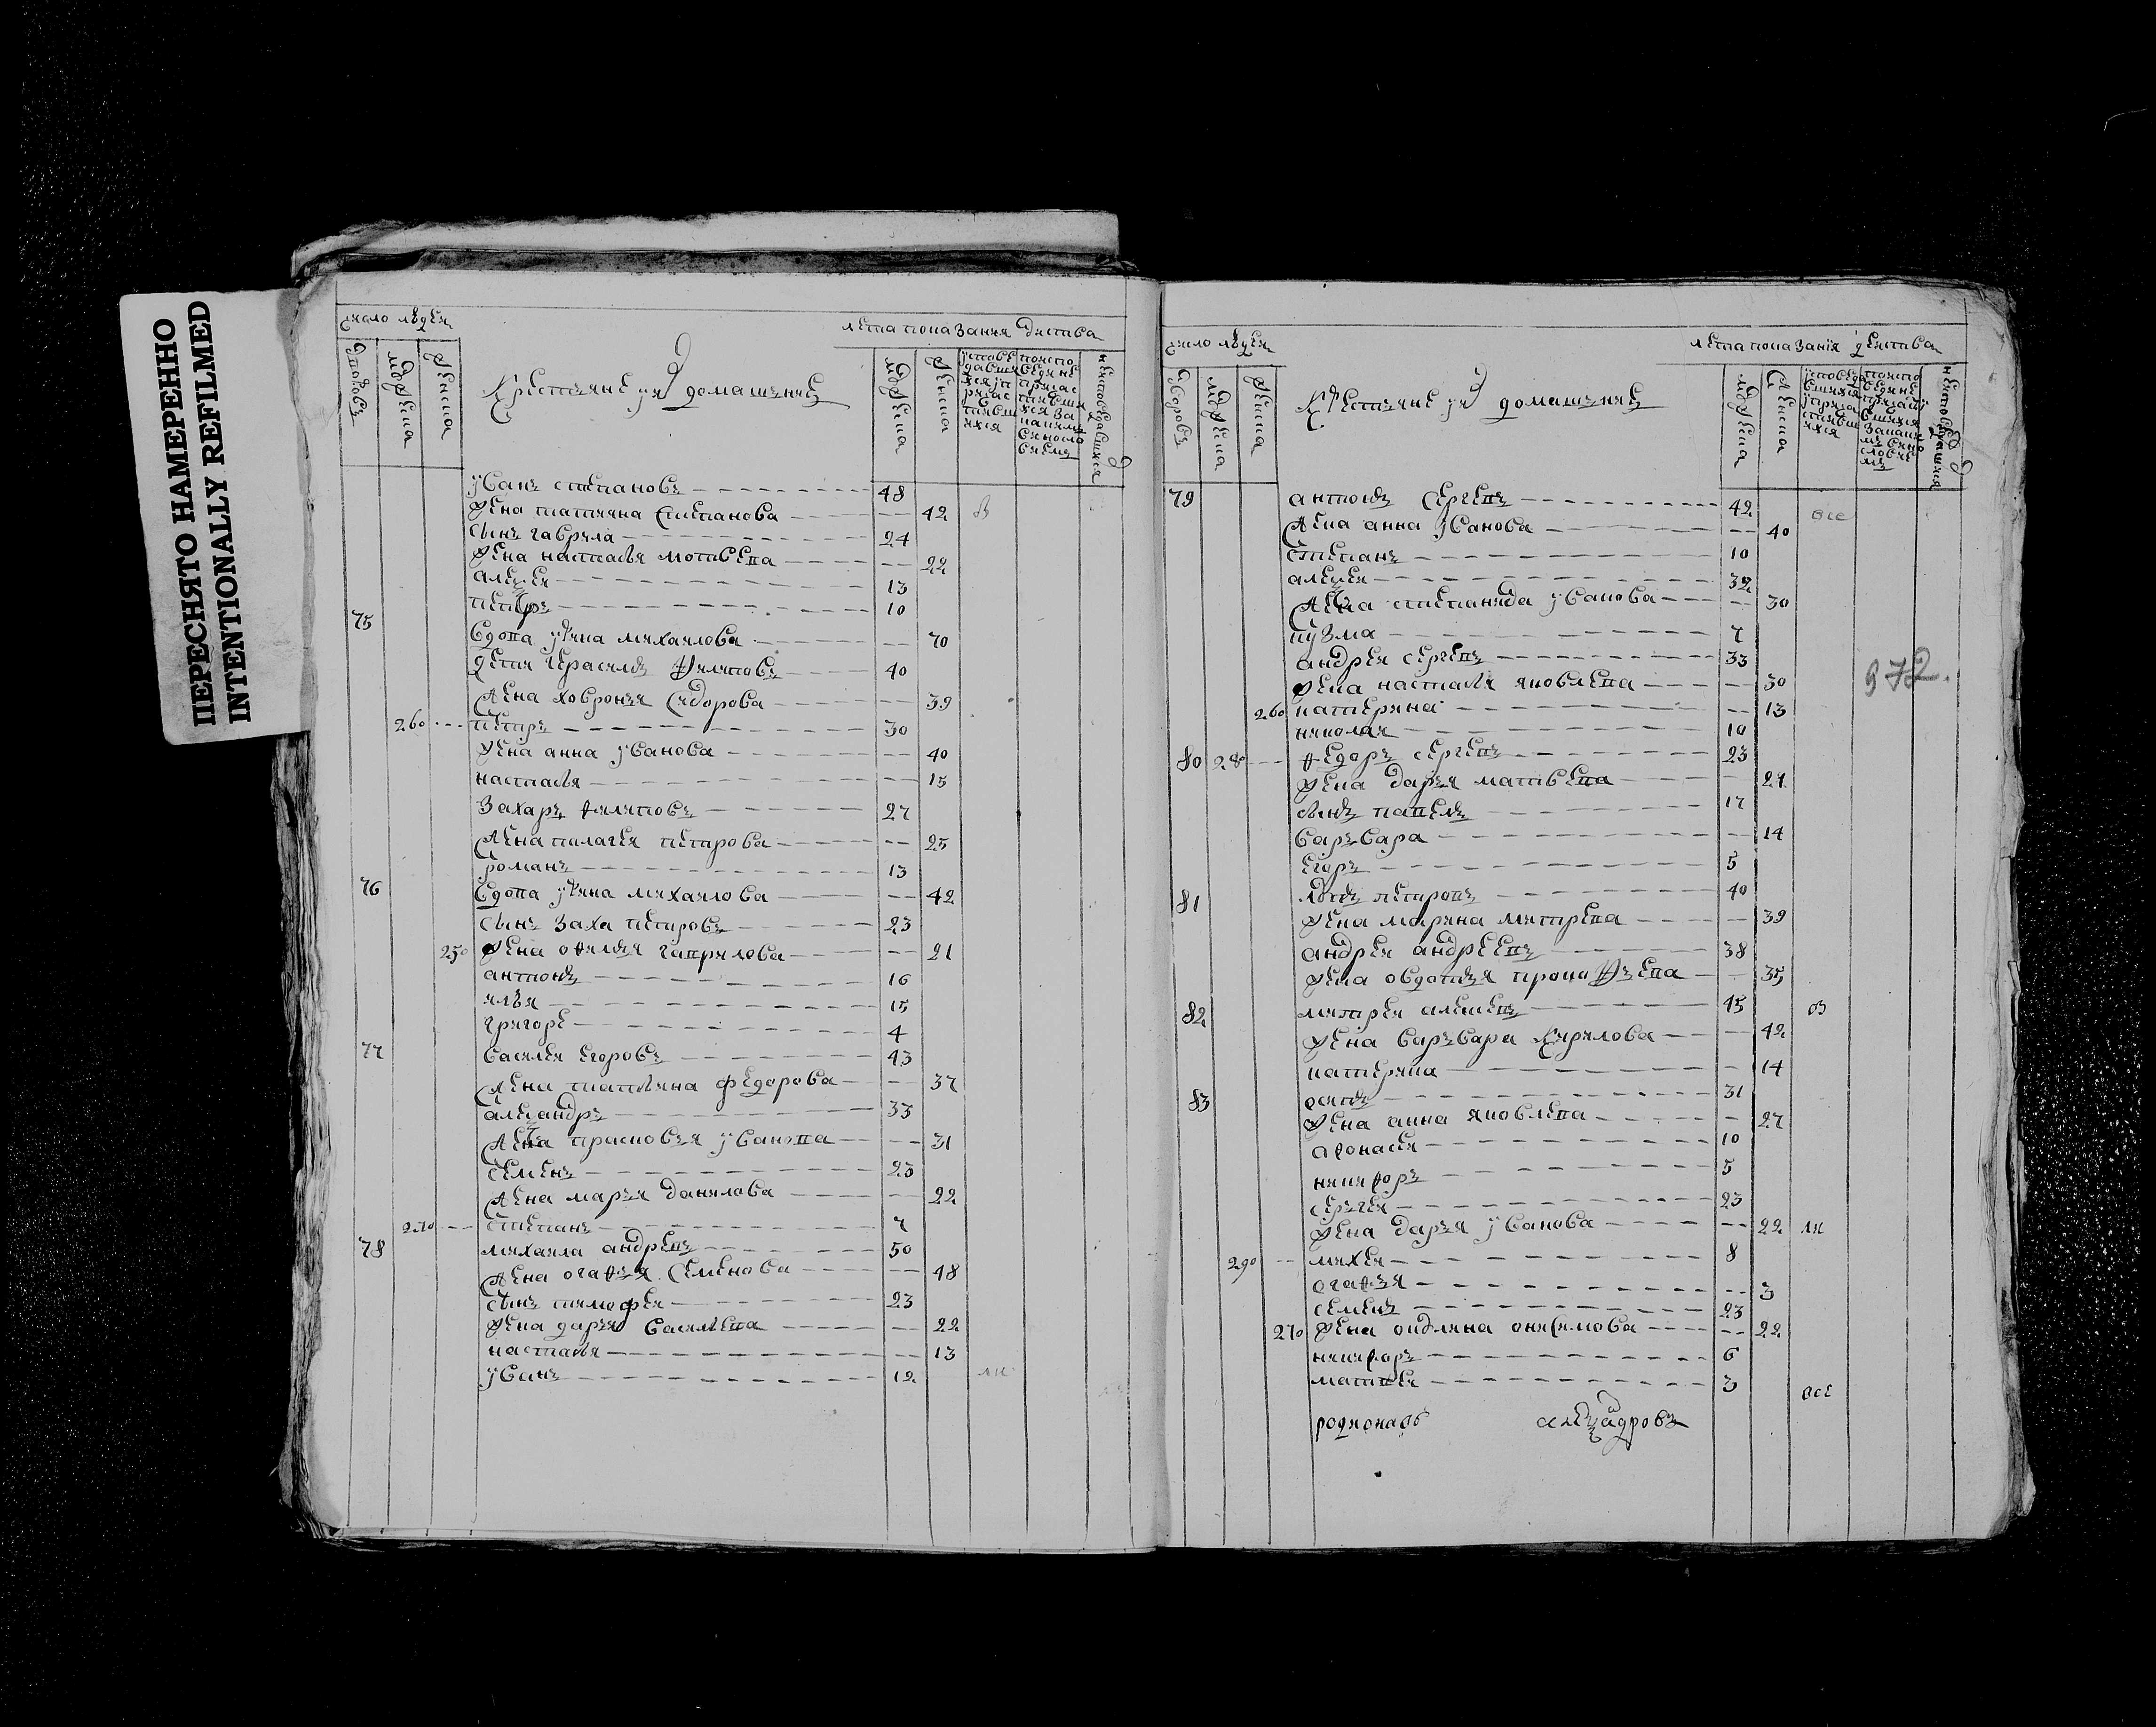 ПЕРЕСНЯТО НАМЕРЕННО
INTENTIONALLY REFILMED
число людей
лета показания действа
дворовъ
мужеска
женска
Крестьяне и ихъ домашнии
мужеска
женска
иванъ степановъ 48
жена татияна степанова 42
сынъ гаврила 24
жена насталья мотвева 22
алеѯей 13
петръ 10
75
вдова ирина михаилова 70
дети герасимъ филиповъ 40
жена ховронья сидорова 39
260 петръ 30
жена анна иванова 40
насталья 15
захаръ филиповъ 27
жена пилагея петрова 25
романъ 13
76 вдова ирина михаилова 42
сынъ заха петровъ 23
250 жена офимия гаврилова 21
антонъ 16
илья 15
григоре 4
77 василей егоровъ 43
жена татьяна федорова 37
алеѯандръ 33
жена прасковья иванова 31
семенъ 23
жена марья данилова 22
270 степанъ 7
78 михаила андревъ 50
жена огафья семенова 48
сынъ тимофей 23
жена дарья василева 22
насталья 13
иванъ 12
число людей
лета показания действа
дворовъ
мужеска
женска
Крестьяне и ихъ домашнии
мужеска
женска
79 антонъ сергевъ 42 все
жена анна иванова 40
степанъ 10
алеѯей 32
жена степанида иванова 30
кузма 7
андрей сергевъ 33
972.
жена насталья яковлева 30
260 катерина 13
николай 10
80 280 федоръ сергевъ 23
жена дарья матвева 21
сынъ павелъ 17
варъвара 14
егоръ 5
81 петровъ 40
жена марина митрева 39
андрей андреевъ 38
жена овдотья прокофьева 35
82 митрей алеѯевъ 45
жена варъвара кирилова 42
катерина 14
83 осипъ 31
жена анна яковлева 27
афонасей 10
никифоръ 5
серъгей 23
жена дарья иванова 22
290 михей 8
огафья 3
семенъ 23
270 жена окулина онисимова 22
никифоръ 6
матвей 3 все
родионовъ алеѯадровъ